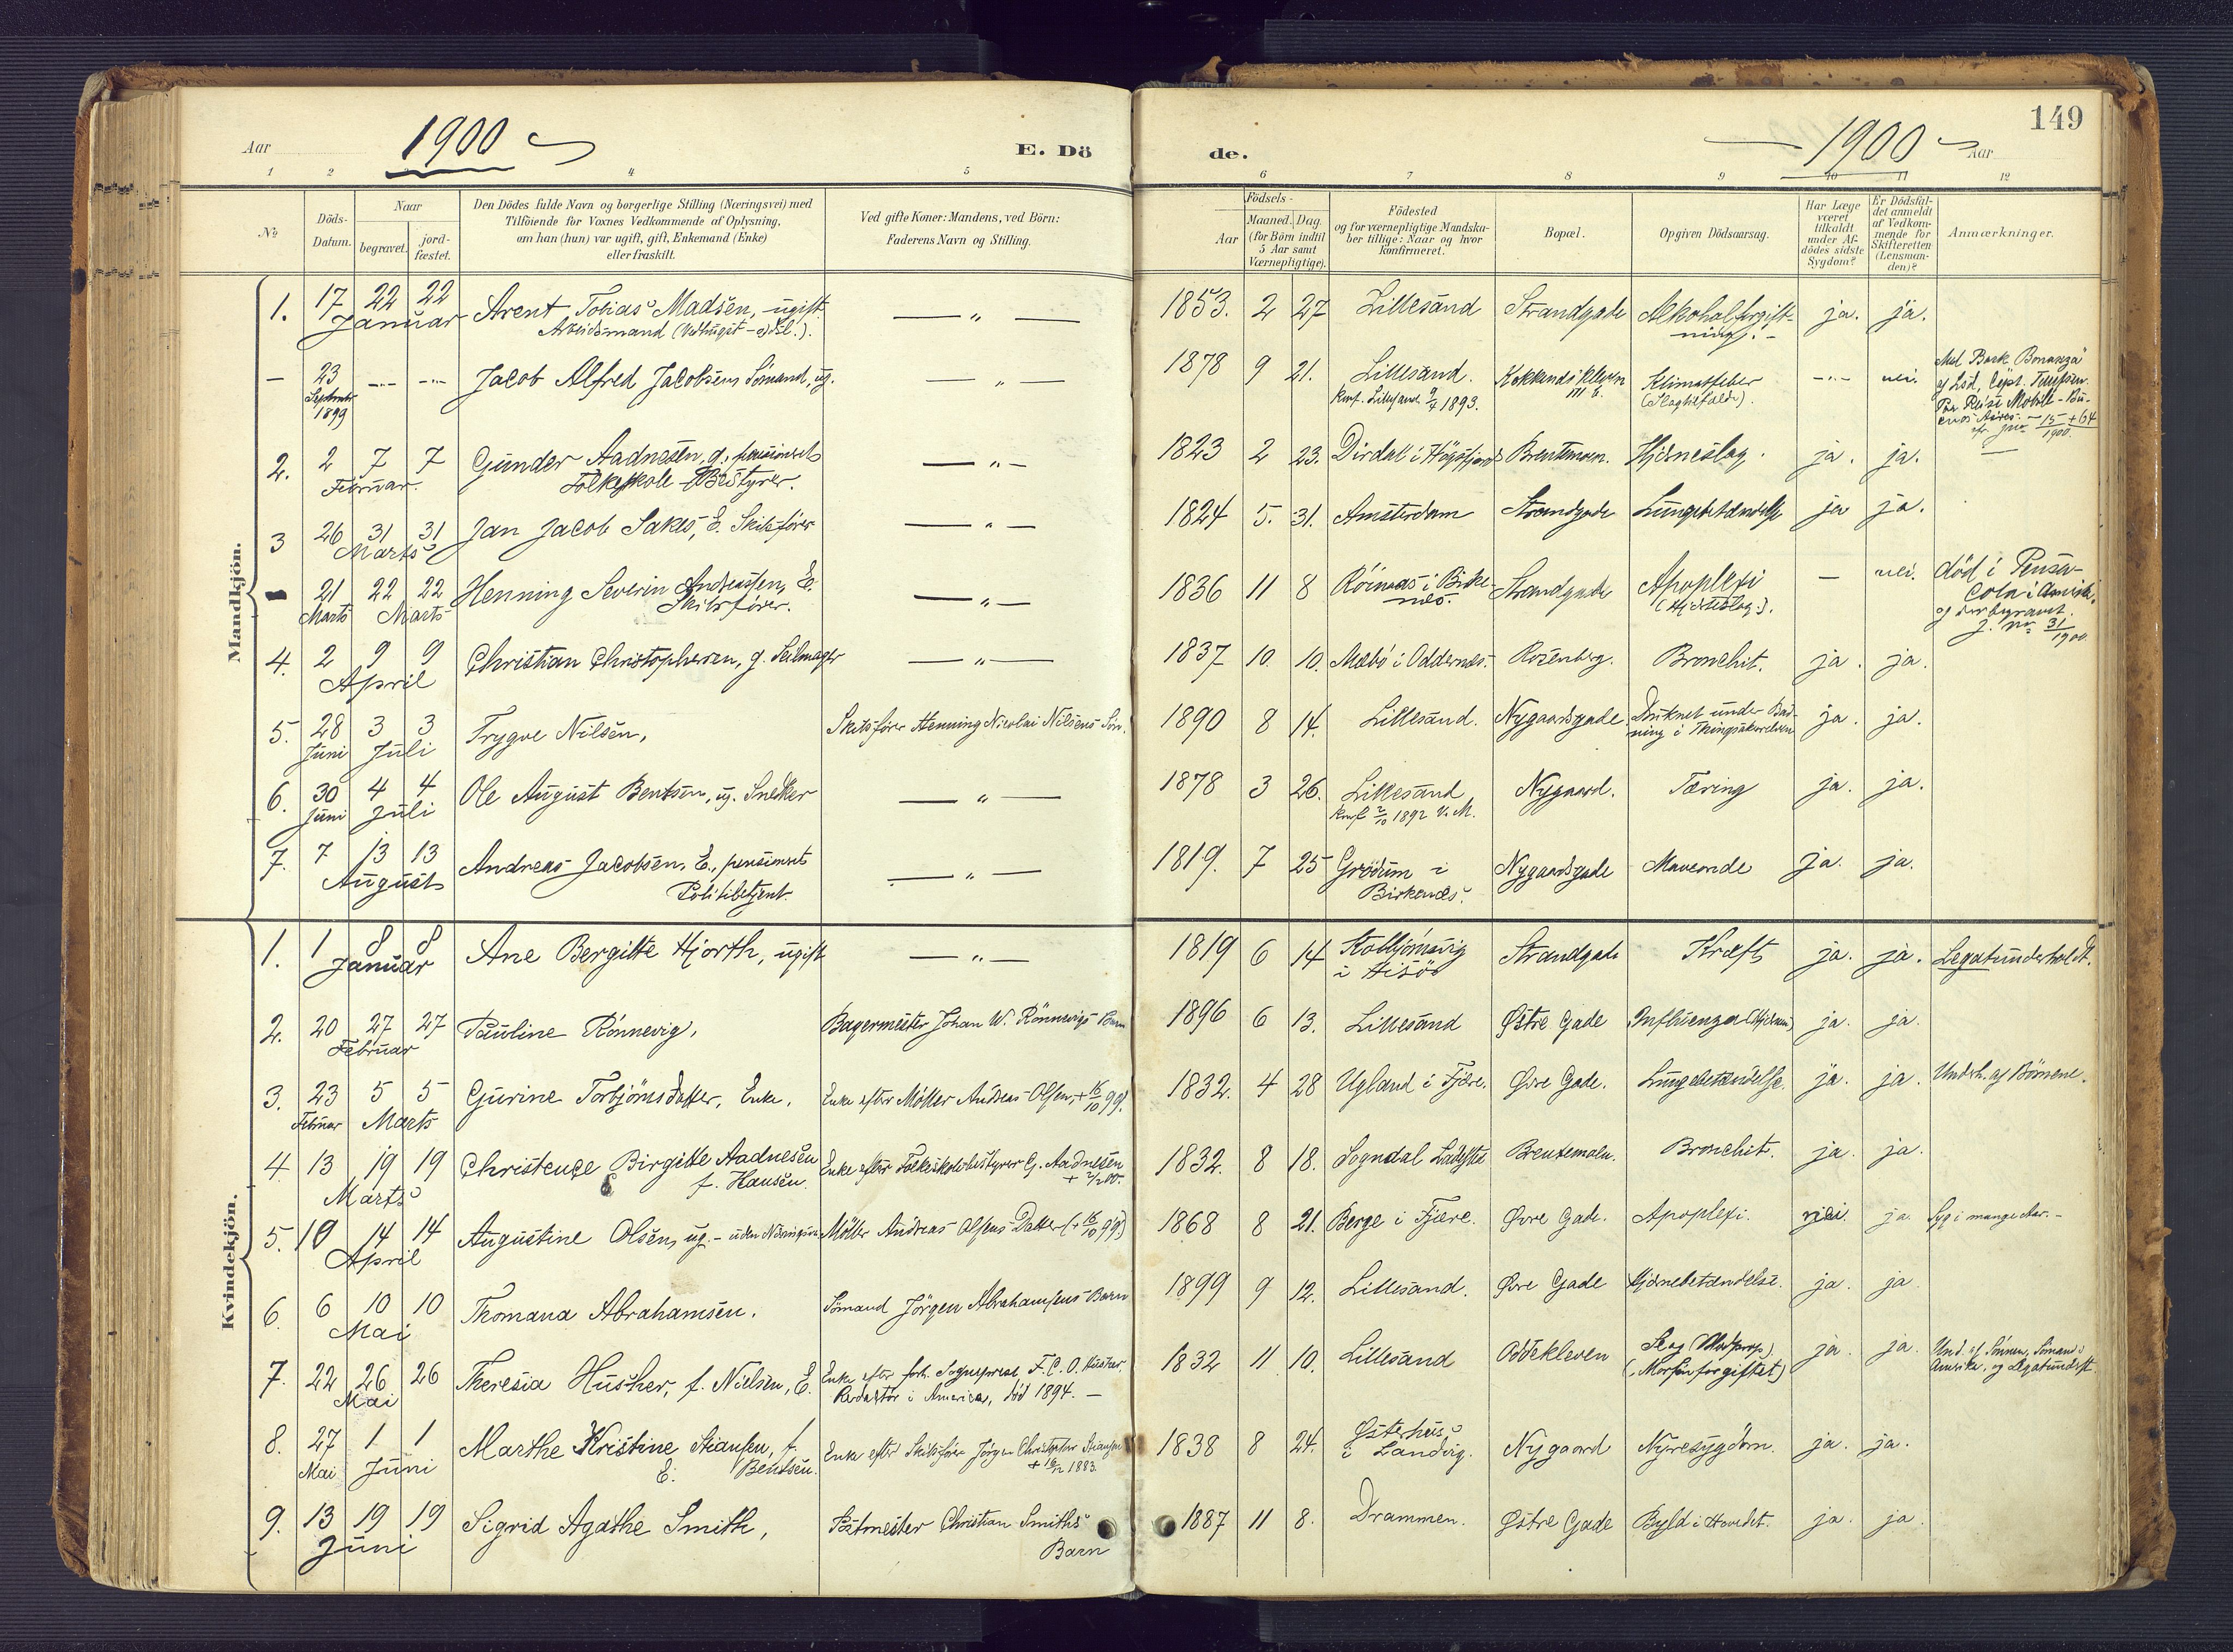 149
Aar 1900
E. Dö
de.
1900 Aar
1 2 4 5
6 7 8 9 10 11 12
No
Döds-
Datum.
Naar
begravet.
jord-
fæstet.
Den Dödes fulde Navn og borgerlige Stilling (Næringsvei) med
Tilföiende for Voxnes Vedkommende af Oplysning,
om han (hun) var ugift, gift, Enkemand (Enke)
eller fraskilt.
Ved gifte Koner: Mandens, ved Börn:
Faderens Navn og Stilling.
Födsels-
Aar
Maaned. Dag.
(for Börn indtil
5 Aar samt
Værnepligtige).
Födested
og for værnepligtige Mandska-
ber tillige: Naar og hvor
konfirmeret.
Bopæl.
Opgiven Dödsaarsag.
Har Læge
været
tilkaldt
under Af-
dödes sidste
Sygdom?
Er Dödsfal-
det anmeldt
af Vedkom-
mende for
Skifteretten
(Lensman-
den)?
Anmærkninger.
Mandkjön.
1. 17 22 22 Arent Tobias Madsen, ugift — " — 1853. 2 27 Lillesand Strandgade Alkoholforgift- ja. ja.
Januar Arbeidsmand ning.
— 23 Jacob Alfred Jacobsen, Sömand, ug. — " — 1878 9 21. Lillesand. Klimatfeber nei. Med Bark "Bonanza"
September Konf. Lillesand 1893. (Slagtilfælde).
1899
2. 2 7 7 Gunder Aadnesen, g. pensioneret — " — 1823 2 23. Dirdal i Högsfjord Brentemoen. Hjerneslag. ja. ja. —
Februar. Folkeskole-Bestyrer.
3 26 31 31 Jan Jacob Sakes, E. Skibsförer — " — 1824 5. 31. Amsterdam Strandgade Lungebetændelse ja ja.
Marts
21 22 22 Henning Severin Andreassen, E. — " — 1836 11 8 i Birke- Strandgade Apoplexi — nei. död i Pensa-
Marts Marts Skibsförer. næs. (Hjerteslag). cola i Amerika,
og der begravet.
j. nr. 31/1900
4. 2 9 9 Christian Christophersen, g. Seilmager — " — 1837 10. 10. Mæbö i Oddernes. Rosenberg. Bronchit. ja. ja.
April
5. 28 3 3 Trygve Nilsen, Skibsförer Henning Nicolai Nilsens Sön. 1890 8 14. Lillesand. Nygaardsgade. Druknet under Bad- ja. ja.
Juni Juli ning i
6. 30 4 4 Ole August Bentsen, ug. Snedker — " — 1878 3 26. Lillesand Nygaard. Tæring ja. ja.
Juni Juli Konf 2/10 1892 V. M.
7. 7 13 13 Andreas Jacobsen, E., pensioneret — " — 1819. 7 25 Grödum i Nygaardsgade Maveonde ja. ja.
August Politibetjent. Birkenæs.
Kvindekjön.
1. 1 8 8 Ane Bergitte Hjorth, ugift — " — 1819 6 14 Kolbjörnsvig Strandgade Kræft ja. ja. Legatunderholdt.
Januar i Hisö
2. 20 27 27 Pauline Rönnevig, Bagermester Johan W. Rönnevigs Barn 1896 6 13. Lillesand Østre Gade Influenza ja. ja.
Februar
3. 23 5 5 Gurine Torbjörnsdatter, Enke. Enke efter Möller Andreas Olsen, + 16/10 99. 1832. 4 28 Ugland i Fjære. Øvre Gade. Lungebetændelse. ja. ja. Underh. af Börnene.
Februar Marts
4. 13 19 19 Christence Birgitte Aadnesen Enke efter Folkeskolebestyrer G. Aadnesen 1832. 8 18. Sogndal Ladested Brentemoen. Bronchit. ja. ja.
Marts f. Hansen. + 2/2 00.
5. 10 14 14 Augustine Olsen, ug. - uden Næringsvei Möller Andreas Olsens Datter (+ 16/10 99) 1868 8 21. Berge i Fjære. Øvre Gade. Apoplexi. nei. ja. Syg i mange Aar. -
April
6. 6 10 10 Thomana Abrahamsen. Sömand Jörgen Abrahamsens Barn 1899 9 12. Lillesand. Øvre Gade Hjernebetændelse. ja. ja.
Mai
7. 22 26 26 Theresia Husher, f. Nielsen, E. Enke efter forh. Sogneprest F. C. O. Husher. 1832 11 10. Lillesand Oddekleven Slag ja. ja. Und. af Sönnen, Sömand i
Mai Redaktör i America, död 1894. — (Morfinforgiftet) Amerika, og Legatunderst.
8. 27 1 1 Marthe Kristine Stiansen, f. Enke efter Skibsförer Jörgen Christopher Stiansen 1838 8 24. Østerhus Nygaard Nyresygdom. ja. ja.
Mai Juni E. Bentsen. + 16/12 1883. i Landvig.
9. 13 19 19 Sigrid Agathe Smith, Postmester Christian Smiths 1887 11 8. Drammen. Østre Gade Byld i Hovedet. ja. ja
Juni Barn